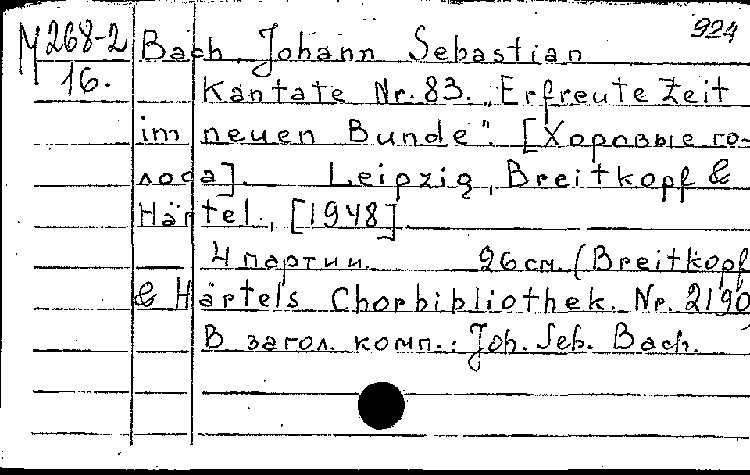 924
М268-2
16.
Bach Johann Sebastian
Kantate Nr. 83. „Erfreute Zeit
im neuen Bunde". [Хоровые го-
лоса]. Leipzig, Breitkopf &
Härtel, [1948]
4 партии. 26 см. (Breitkopf
& Härtels Chorbibliothek. Nr. 2190
В загол. комп.: Joh. Seb. Bach.